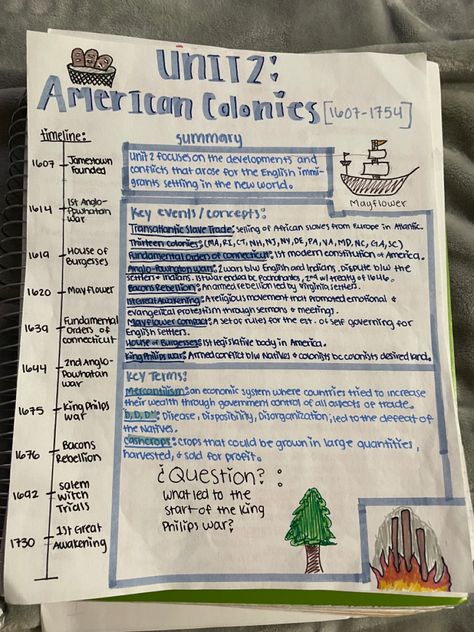 Unit 2:
American Colonies [1607-1754]
timeline:
1607 Jamestown
founded
1614 1st Anglo-
Powhatan
war
1619 House of
Burgesses
1620 Mayflower
1639 Fundamental
Orders of
connecticut
1644 2nd Anglo-
Powhatan
war
1675 King Philips
war
1676 Bacons
Rebellion
1692 salem
witch
Trials
1730 1st Great
Awakening
summary
Unit 2 focuses on the developments and
conflicts that arose for the English immi-
grants settling in the new world.
Mayflower
Key events/concepts:
Transatlantic Slave Trade: selling of African slaves from Europe in Atlantic.
Thirteen colonies: (MA, RI, CT, NH, NJ, NY, DE, PA, VA, MD, NC, GA, SC)
Fundamental Orders of Connecticut: 1st modern constitution of America.
Anglo-Powhatan wars: 2 wars b/w English and Indians, dispute b/w the
settlers & Indians. 1st war ended bc Pocahontas, 2nd w/ treaty of 1646.
Bacons Rebellion: armed rebellion led by Virginia settlers.
1st Great Awakening: A religious movement that promoted emotional &
evangelical protestism through sermons & meetings.
Mayflower Compact: A set of rules for the est. of self governing for
English settlers.
House of Burgesses: 1st legislative body in America.
King Philips war: Armed conflict b/w Natives & colonists bc colonists desired land.
Key Terms:
Mercantilism: an economic system where countries tried to increase
their wealth through government control of all aspects of trade.
D, D, D": Disease, Disposibility, Disorganization; led to the defeat of
the Natives.
cashcrops: crops that could be grown in large quantities,
harvested, & sold for profit.
¿Question?:
what led to the
start of the King
Philips war?